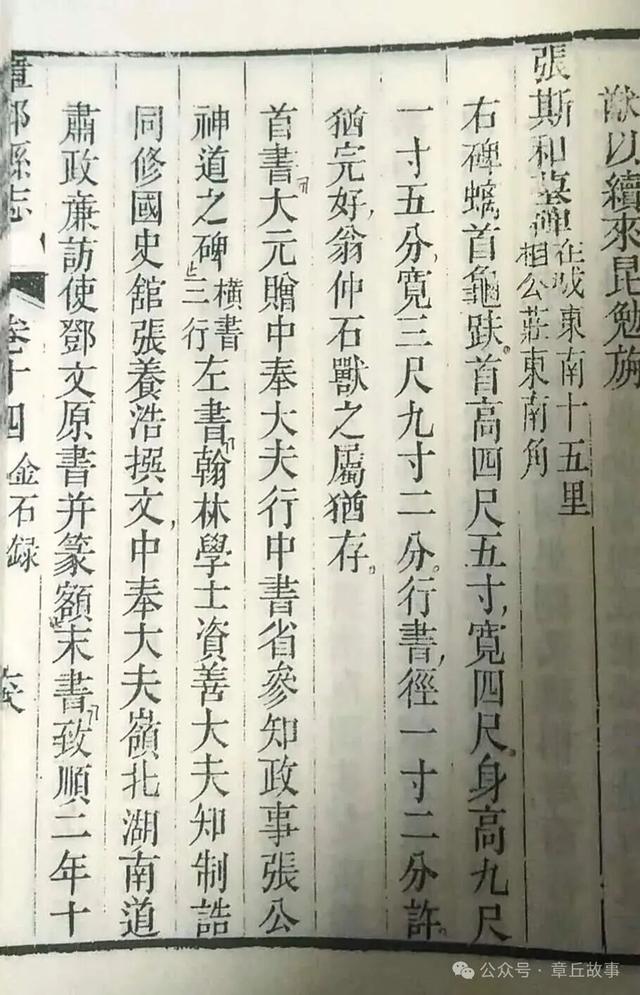 猷以續來昆勉旃
張斯和墓碑在城東南十五里
相公莊東南角
右碑螭首龜趺首高四尺五寸寬四尺身高九尺
一寸五分寬三尺九寸二分行書徑一寸二分許
猶完好翁仲石獸之屬猶存
首書大元贈中奉大夫行中書省參知政事張公
神道之碑橫書
三行左書翰林學士資善大夫知制誥
同修國史舘張養浩撰文中奉大夫嶺北湖南道
肅政廉訪使鄧文原書并篆額末書致順二年十
章邱縣志
卷十四
金石録
公众号·章丘故事